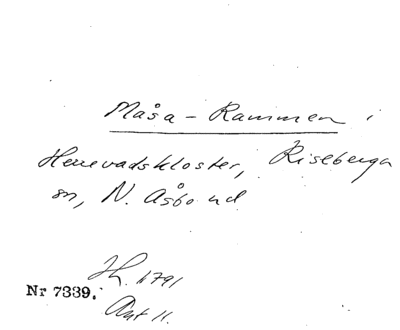 Måsa - Rammen i
Herrevadskloster, Riseberga
sn, N. Åsbo hd
Jh. 1791
Nr 7339.
Ant 11.